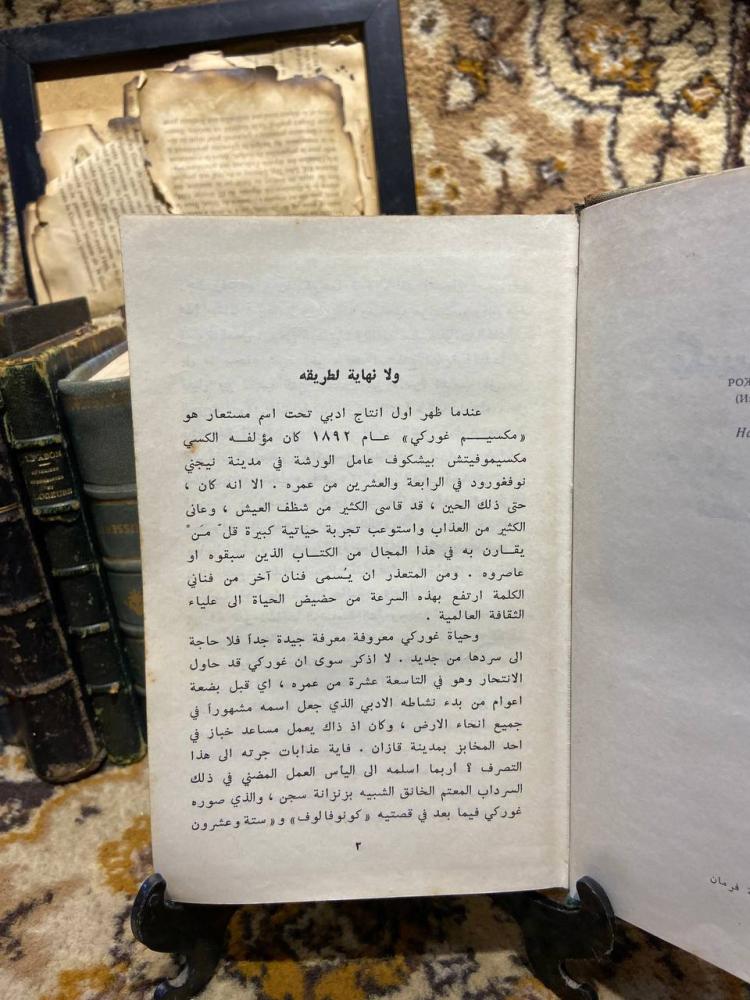 ولا نهاية لطريقه
عندما ظهر اول انتاج ادبي تحت اسم مستعار هو
«مكسيـــم غوركي» عـام ١٨٩٢ كان مؤلفـه الكسي
مكسيموفيتش بيشكوف عامل الورشة في مدينة نيجني
نوفغورود في الرابعة والعشرين من عمره . الا انه كان ،
حتى ذلك الحين ، قد قاسى الكثير من شظف العيش ، وعانى
الكثير من العذاب واستوعب تجربة حياتية كبيرة قلّ مَنْ
يقـارن به في هذا المجال من الكتـاب الذين سبقوه او
عاصروه . ومن المتعذر ان يُسمى فنان آخر من فناني
الكلمة ارتفع بهذه السرعة من حضيض الحياة الى علياء
الثقافة العالمية .
وحياة غوركي معروفة معرفة جيدة جداً فلا حاجة
الى سردها من جديد . لا اذكر سوى ان غوركي قد حاول
الانتحار وهو في التاسعة عشرة من عمره ، اي قبل بضعة
اعوام من بدء نشاطه الادبي الذي جعل اسمه مشهوراً في
جميع انحاء الارض ، وكان اذ ذاك يعمل مساعد خباز في
احد المخابز بمدينة قازان . فاية عذابات جرته الى هذا
التصرف ؟ أربما اسلمه الى الياس العمل المضني في ذلك
السرداب المعتم الخانق الشبيه بزنزانة سجن ، والذي صوره
غوركي فيما بعد في قصتيه «كونوفالوف» و«ستة وعشرون
٣
РОЖ
(Из
На
فرمان